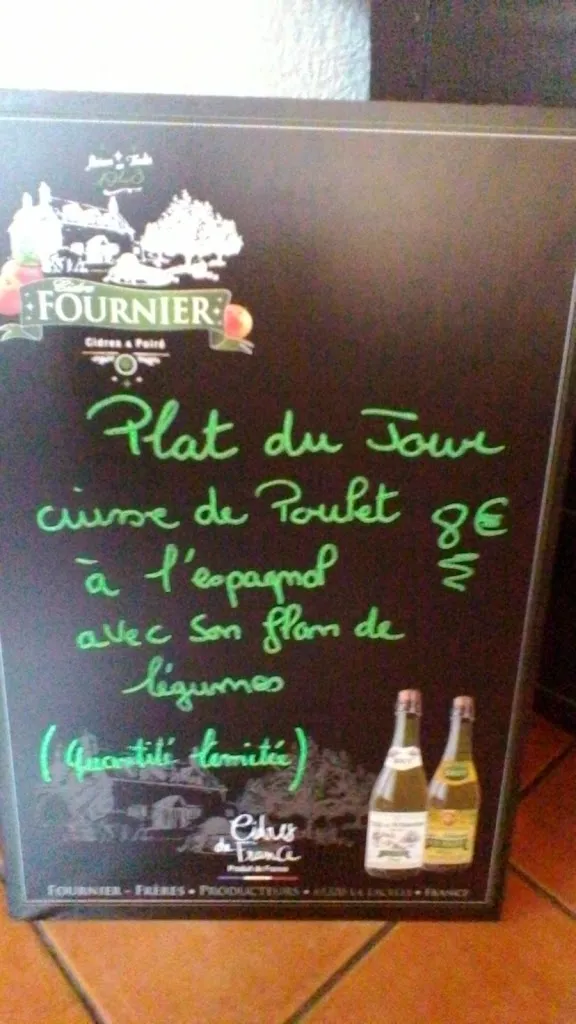 FOURNIER
Cidres & Poiré
Plat du Jour
cuisse de Poulet 8€
à l'espagnol
avec son flan de
légumes
(Quantité limitée)
Cidres
de France
Produit de France
FOURNIER - FRÈRES • PRODUCTEURS • FRANCE